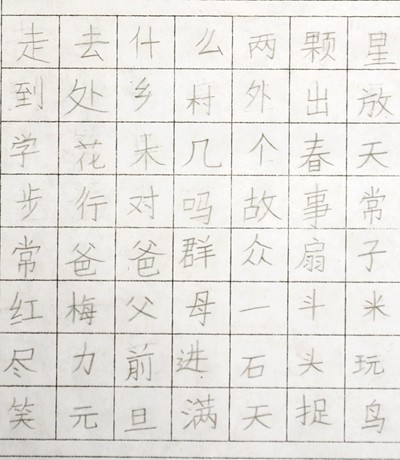 走去什么两颗星
到处乡村外出放
学花未几个春天
步行对吗故事常
常爸爸群众扇子
红梅父母一斗米
尽力前进石头玩
笑元旦满天捉鸟